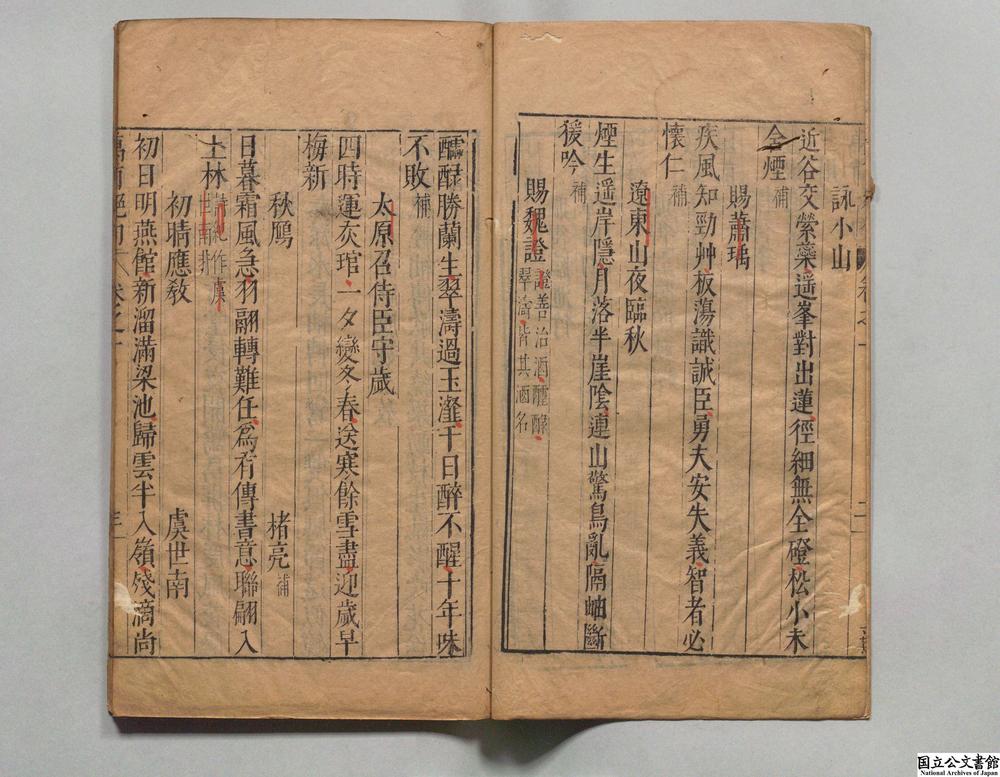 詠小山
近谷交縈蘂遥峯對出蓮徑細無全磴松小未
含煙補
賜蕭瑀
疾風知勁艸板蕩識誠臣勇夫安失義智者必
懷仁補
遼東山夜臨秋
煙生遥岸隱月落半崖陰連山驚鳥亂隔岫斷
猨吟補
賜魏證證善治酒醽醁
翠濤皆其酒名
醽醁勝蘭生翠濤過玉瀣千日醉不醒十年味
不敗補
太原召侍臣守歲
四時運灰琯一夕變冬春送寒餘雪盡迎歲早
梅新
秋鴈 褚亮補
日暮霜風急羽翮轉難任爲有傳書意聯翩入
上林
初晴應敎 虞世南
初日明燕館新溜滿梁池歸雲半入嶺殘滴尚
國立公文書館
National Archives of Japan